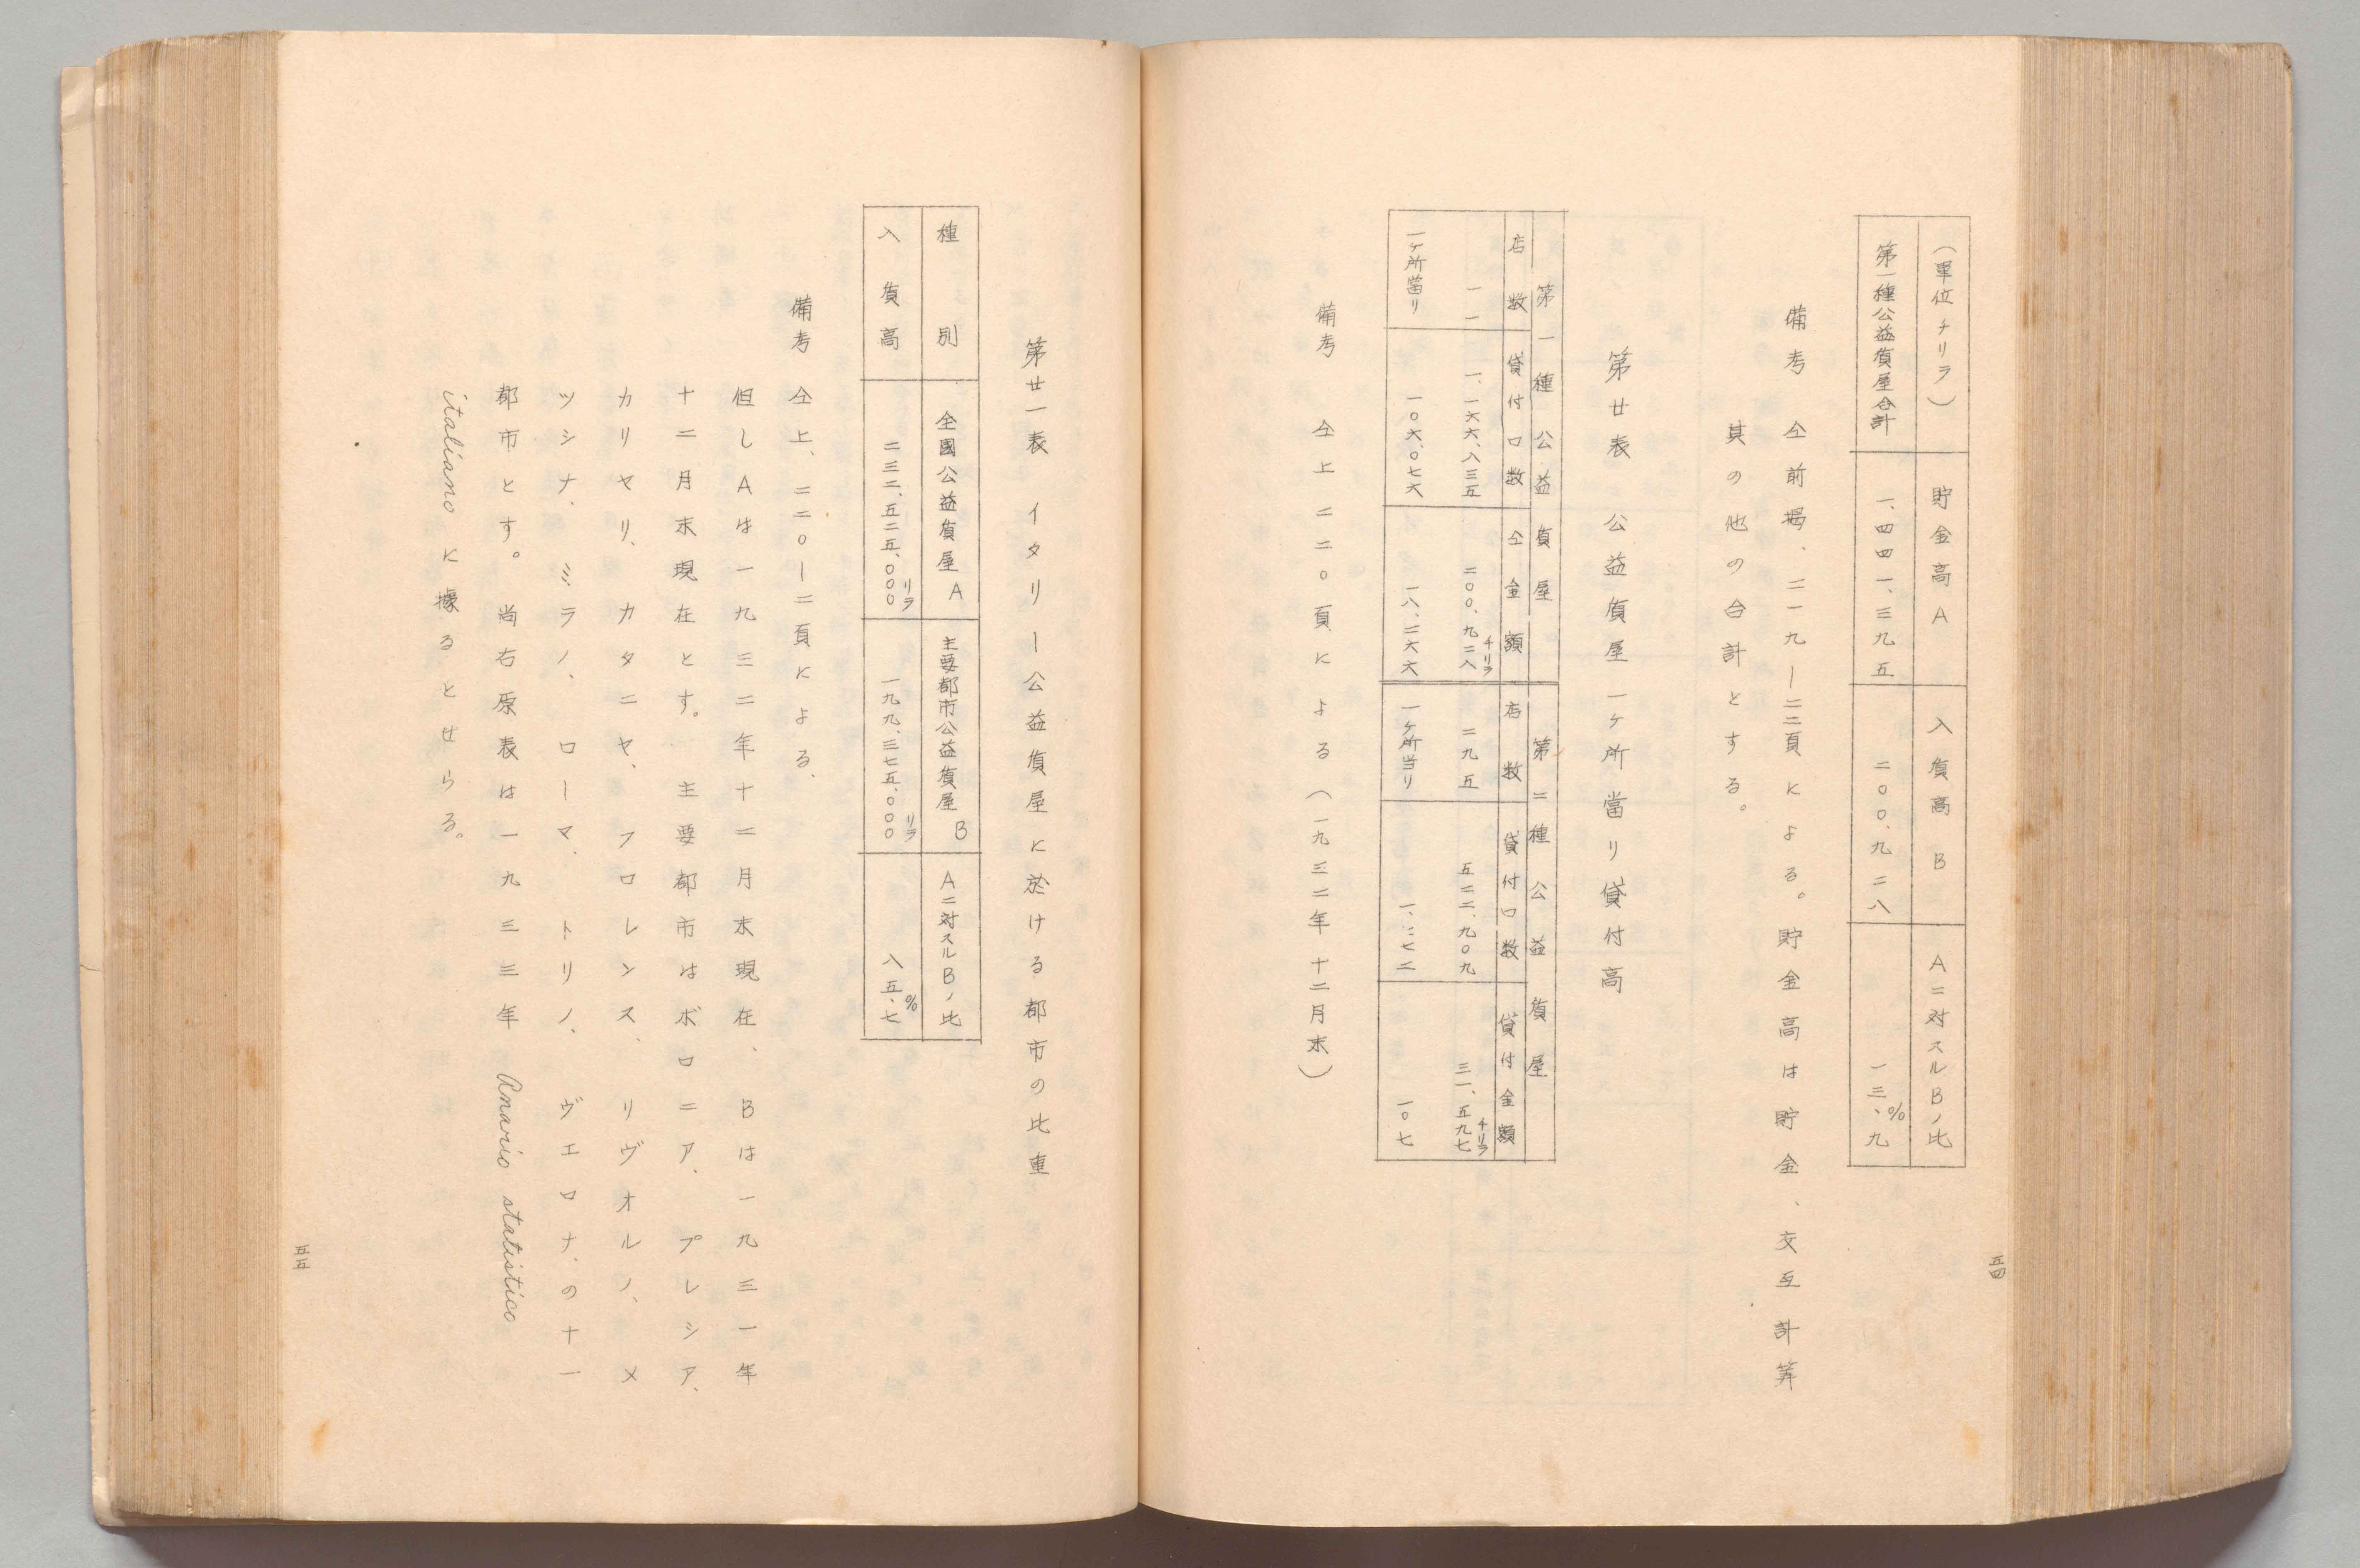 (單位チリラ) 貯金高A 入質高B A二対スルBノ比
第一種公益質屋合計 一、四四一、三九五 二〇〇、九二八 一三、九%
備考 仝前掲、二一九—二二頁による。貯金高は貯金、交互計筭
其の他の合計とする。
第廿表 公益質屋一ヶ所當り貸付高
第一種公益質屋 第二種公益質屋
店数 貸付口数 仝金額 店数 貸付口数 貸付金額
一一 一、一六六、八三五 二〇〇、九二八チリラ 二九五 五二二、九〇九 三一、五九七チリラ
一ヶ所當り 一〇六、〇七六 一八、二六六 一ヶ所当り 一、七七二 一〇七
備考 仝上二二〇頁による(一九三二年十二月末)
五四
第廿一表 イタリー公益質屋に於ける都市の比重
種別 全國公益質屋A 主要都市公益質屋B A二対スルBノ比
入質高 二三二、五二五、〇〇〇リラ 一九九、三七五、〇〇〇リラ 八五、七%
備考 仝上、二二〇—二頁による、
但しAは一九三二年十二月末現在、Bは一九三一年
十二月末現在とす。主要都市はボロニア、プレシア、
カリヤリ、カタニヤ、フロレンス、リヴオルノ、メ
ツシナ、ミラノ、ローマ、トリノ、ヴエロナ、の十一
都市とす。尚右原表は一九三三年 Anario statistico
italiano に據るとせらる。
五五